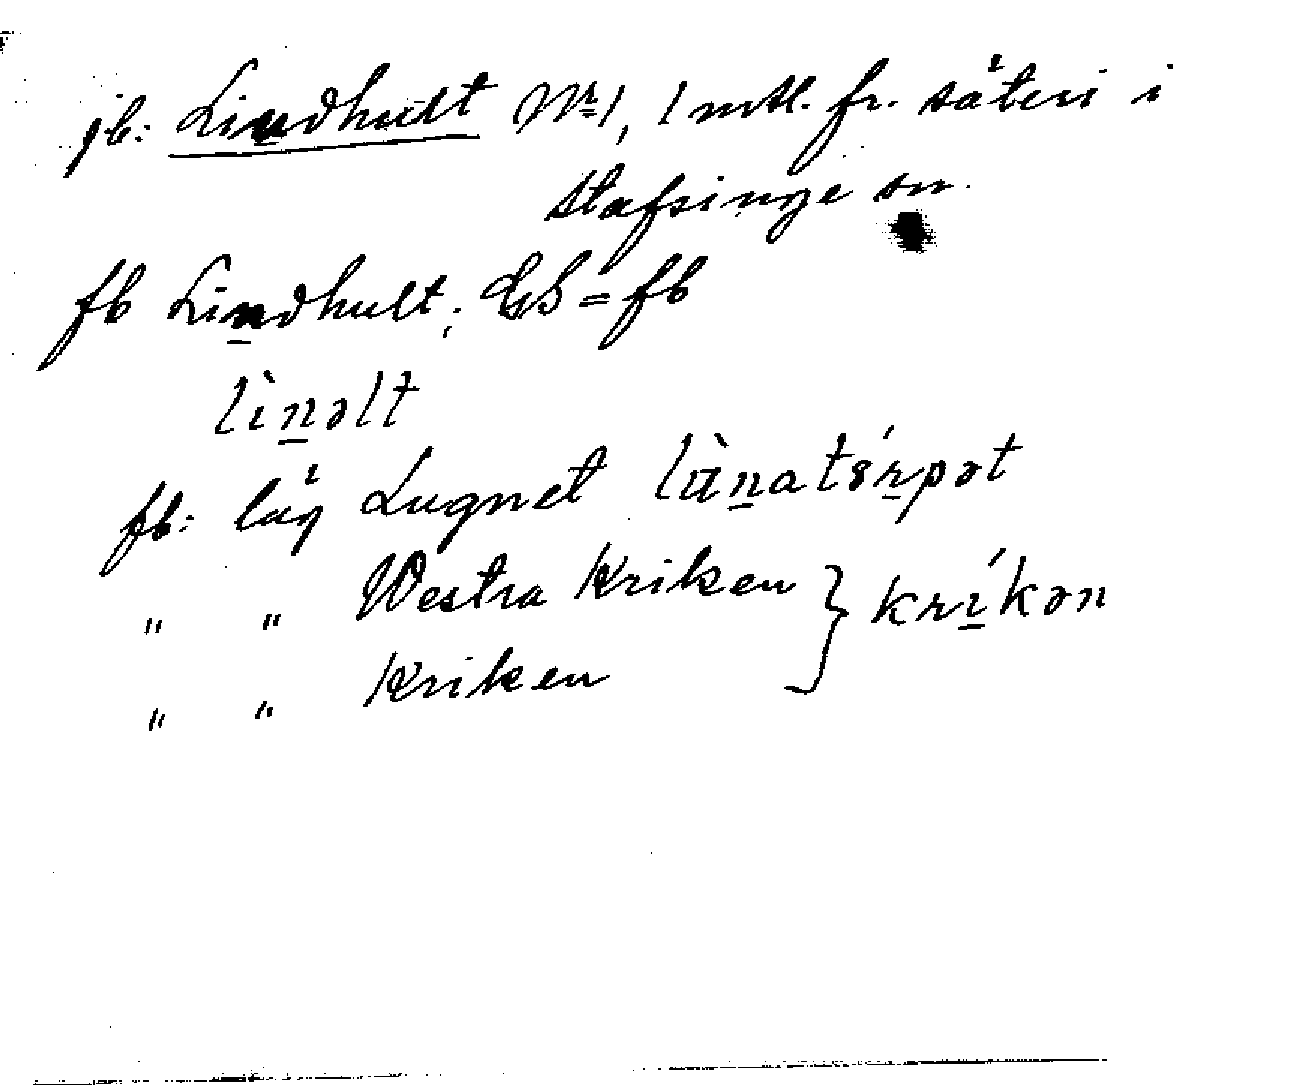 jb: Lindhult Nr 1, 1 mtl. fr. säteri i
Stafsinge sn.
fb Lindhult; GS = fb
lìn̲əlt
fb: läg Lugnet
" " Westra Kriken } krı̲́kən
" " Kriken